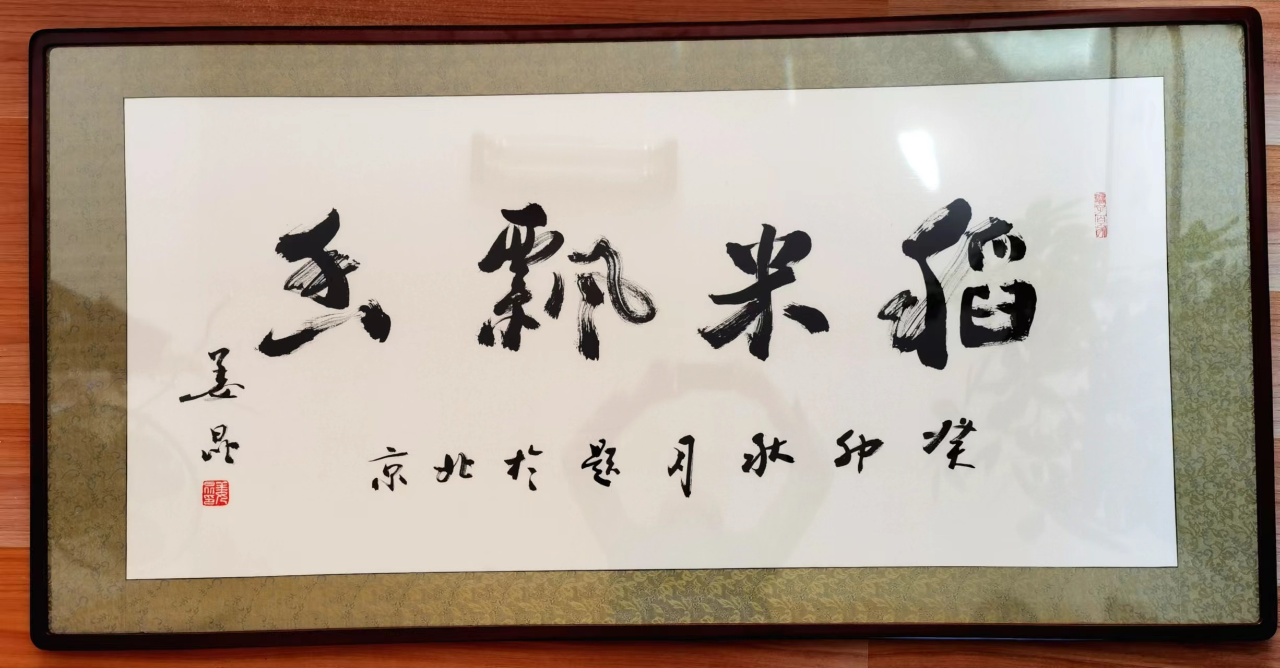 稻米飘香
癸卯秋月题於北京
姜昆